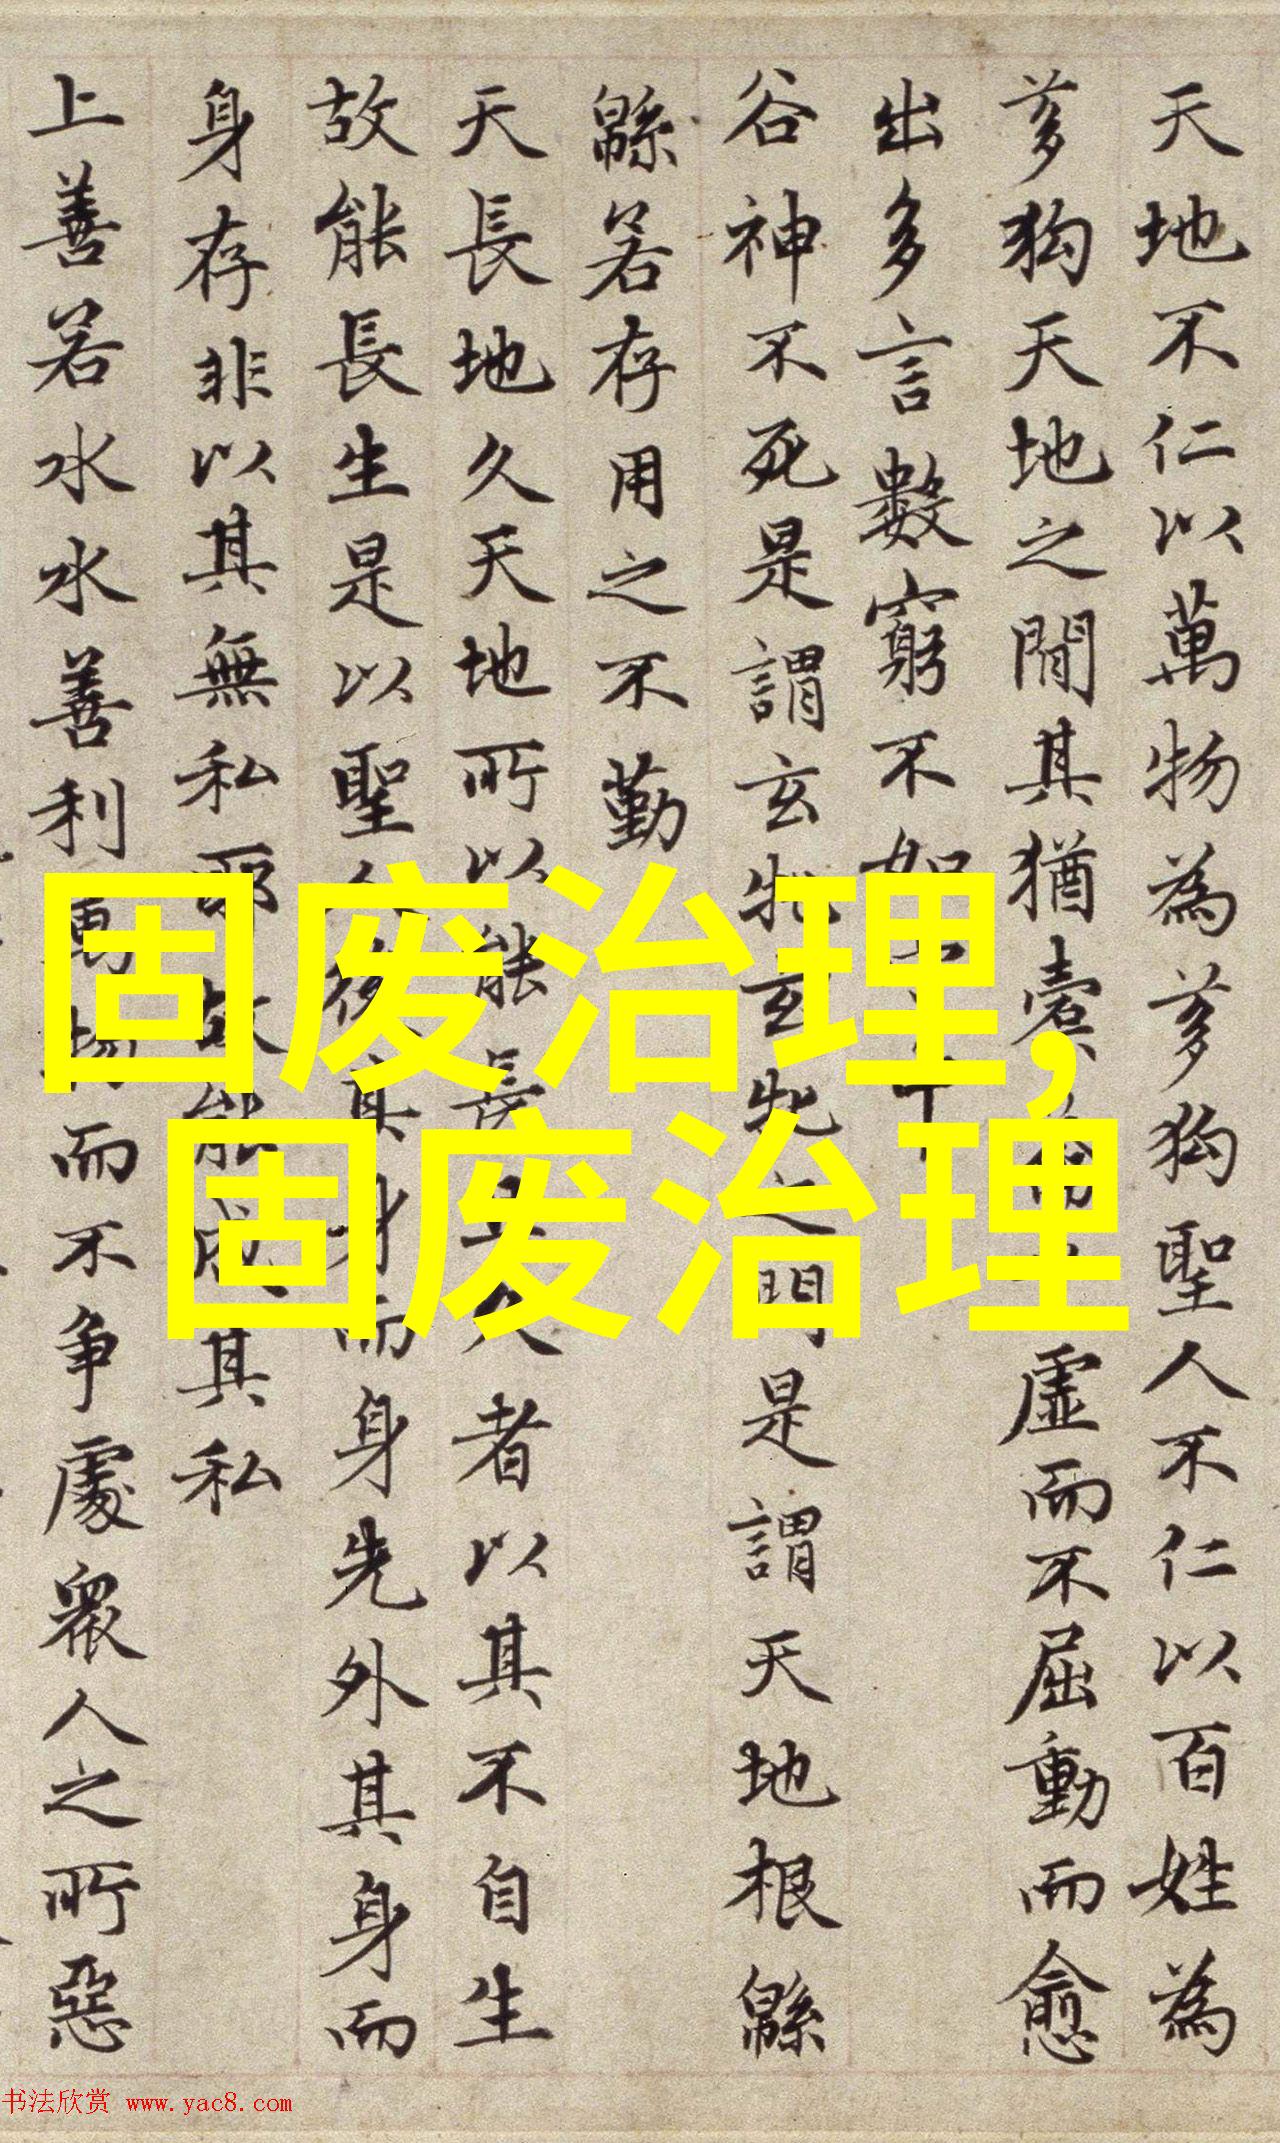 天地不仁以萬物為芻狗聖人不仁以百姓為
芻狗天地之間其猶橐虛而不屈動而愈
出多言數窮不如中
谷神不死是謂玄牝玄牝之門是謂天地根緜
緜若存用之不勤
天長地久天地所以能長且久者以其不自生
故能長生是以聖人後其身而身先外其身而
身存非以其無私耶故能成其私
上善若水水善利萬物而不爭處衆人之所惡
固废治理,
固废治理
书法欣赏 www.yac8.com